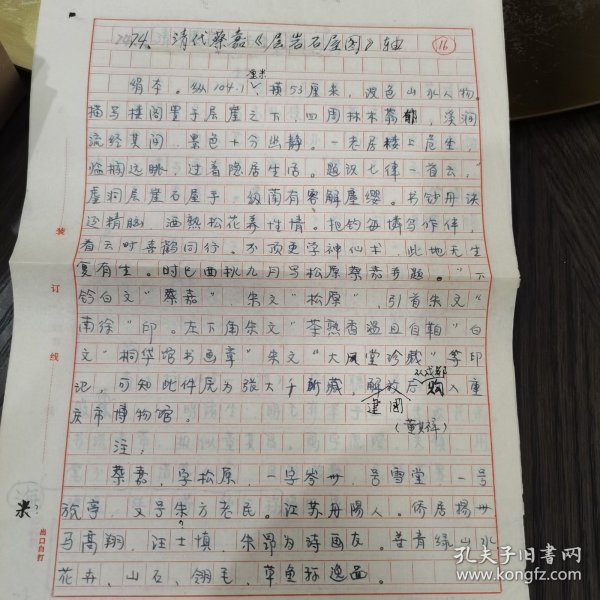 74. 清代蔡嘉《层岩石屋图》轴
16
绢本。纵104.1厘米,横53厘米,设色山水人物。
描写楼阁置于层崖之下,四周林木蓊郁,溪涧
流经其间,景色十分幽静。一老居楼上危坐,
临榻远眺,过着隐居生活。题识七律一首云:"
虚洞层崖石屋手,纳南有零解尘缨。书钞丹诀
还精脑,酒熟松花养性情。把钓每博写作伴,
看云时喜鹤同行。不须更学神仙术,此地无生
复有生。时己酉秋九月写松原蔡嘉并题。"下
钤白文"蔡嘉"、朱文"松原",引首朱文"
南徐"印。左下角朱文"茶熟香温且自"白
文"桐华馆书画章"朱文"大风堂珍藏"等印
记,可知此件原为张大千所藏,解放后从成都购入重
建国
庆市博物馆。
(董其祥)
注:
蔡嘉,字松原,一字岑州,号雪堂,一号
旅亭,又号朱方老民。江苏丹阳人。侨居扬州
马高翔,汪士填,朱昂为诗画友。善青绿山水
花卉、山石、翎毛,草鱼称逸品。
米
装
订
线
出口自打
孔夫子旧书网
www.kongfz.com